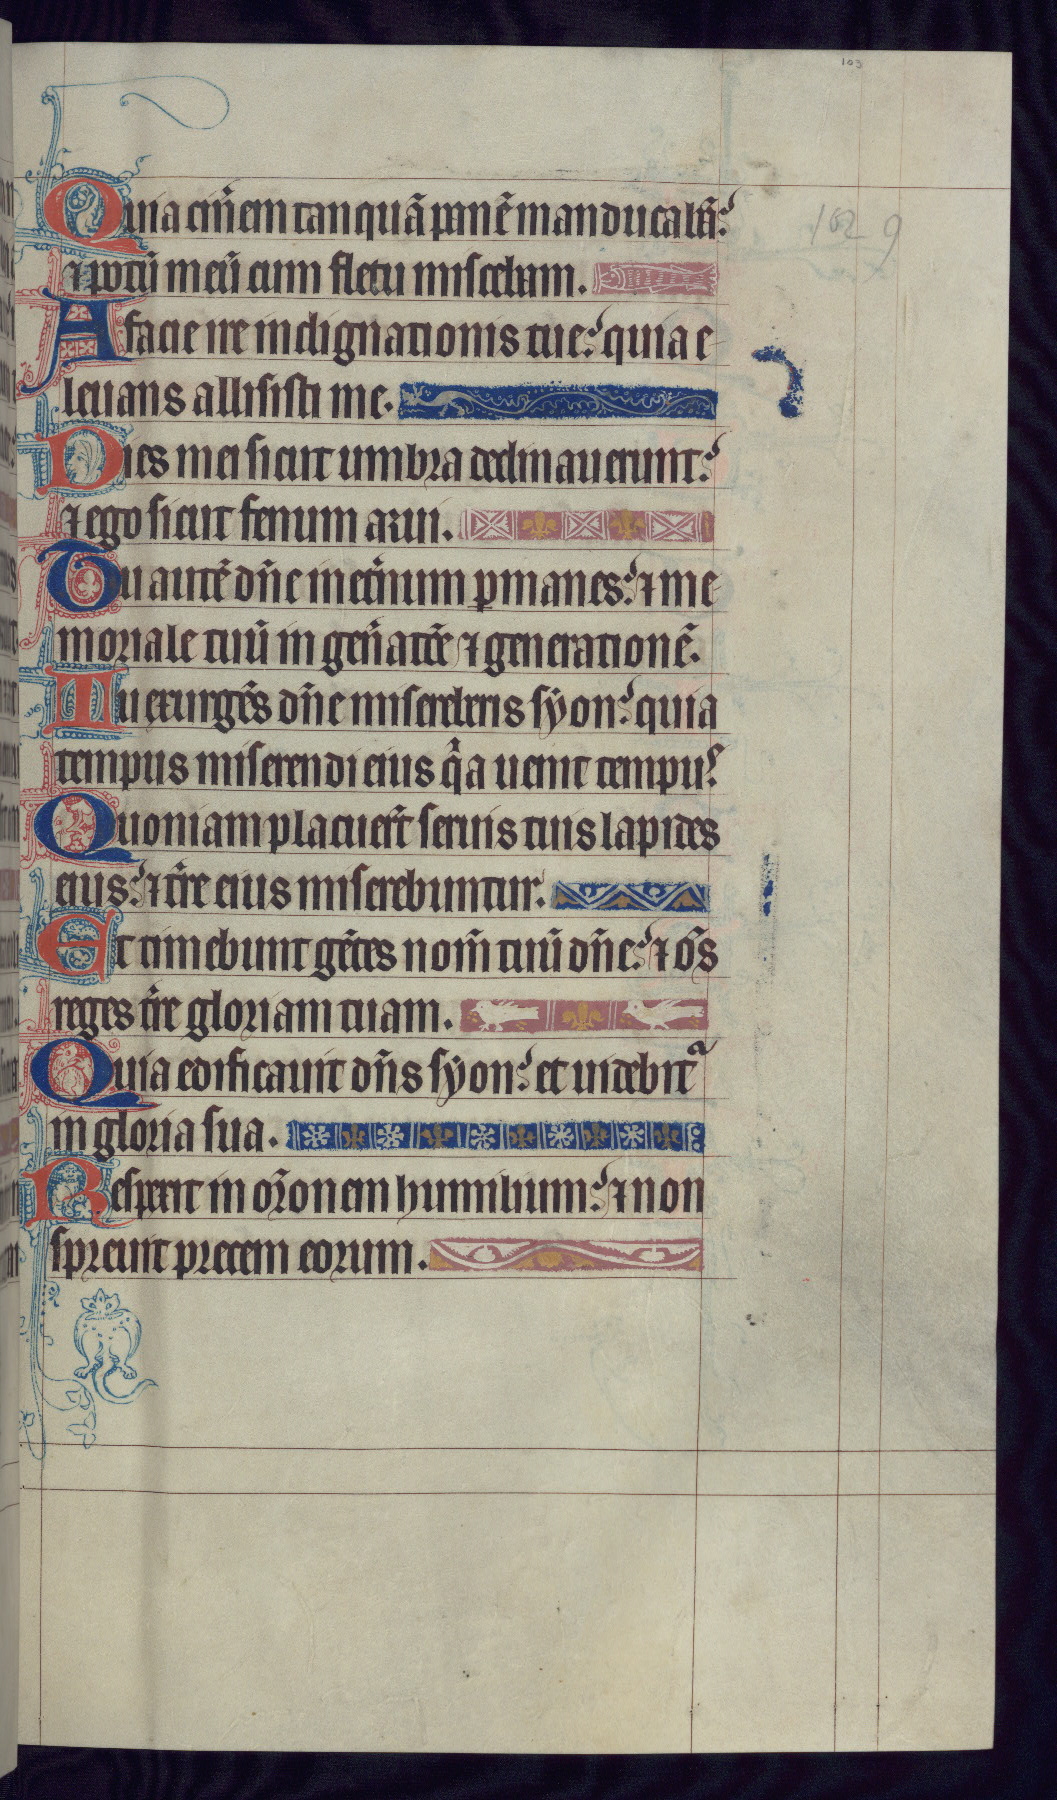 103
102 9
Quia cin̄em tanquā panē manducabā:
⁊ potū meū cum fletu miscebam.
A facie ire indignationis tue: quia e
leuans allisisti me.
Dies mei sicut umbra declinauerunt:
⁊ ego sicut fenum arui.
Tu autē dn̄e in et̄num ꝑmanes: ⁊ me
moriale tuū in gen̄atōe ⁊ generationē.
Tu exurgēs dn̄e misereberis syon: quia
tempus miserendi eius qͥa uenit tempus
Quoniam placuer̄t seruis tuis lapides
eius: ⁊ t̄re eius miserebuntur.
Et timebunt gētes nom̄ tuū dn̄e: ⁊ om̄s
reges t̄re gloriam tuam.
Quia edificauit dn̄s syon: et uidebitᷓ
in gloria sua.
Respexit in or̄onem humilium: ⁊ non
spreuit precem eorum.